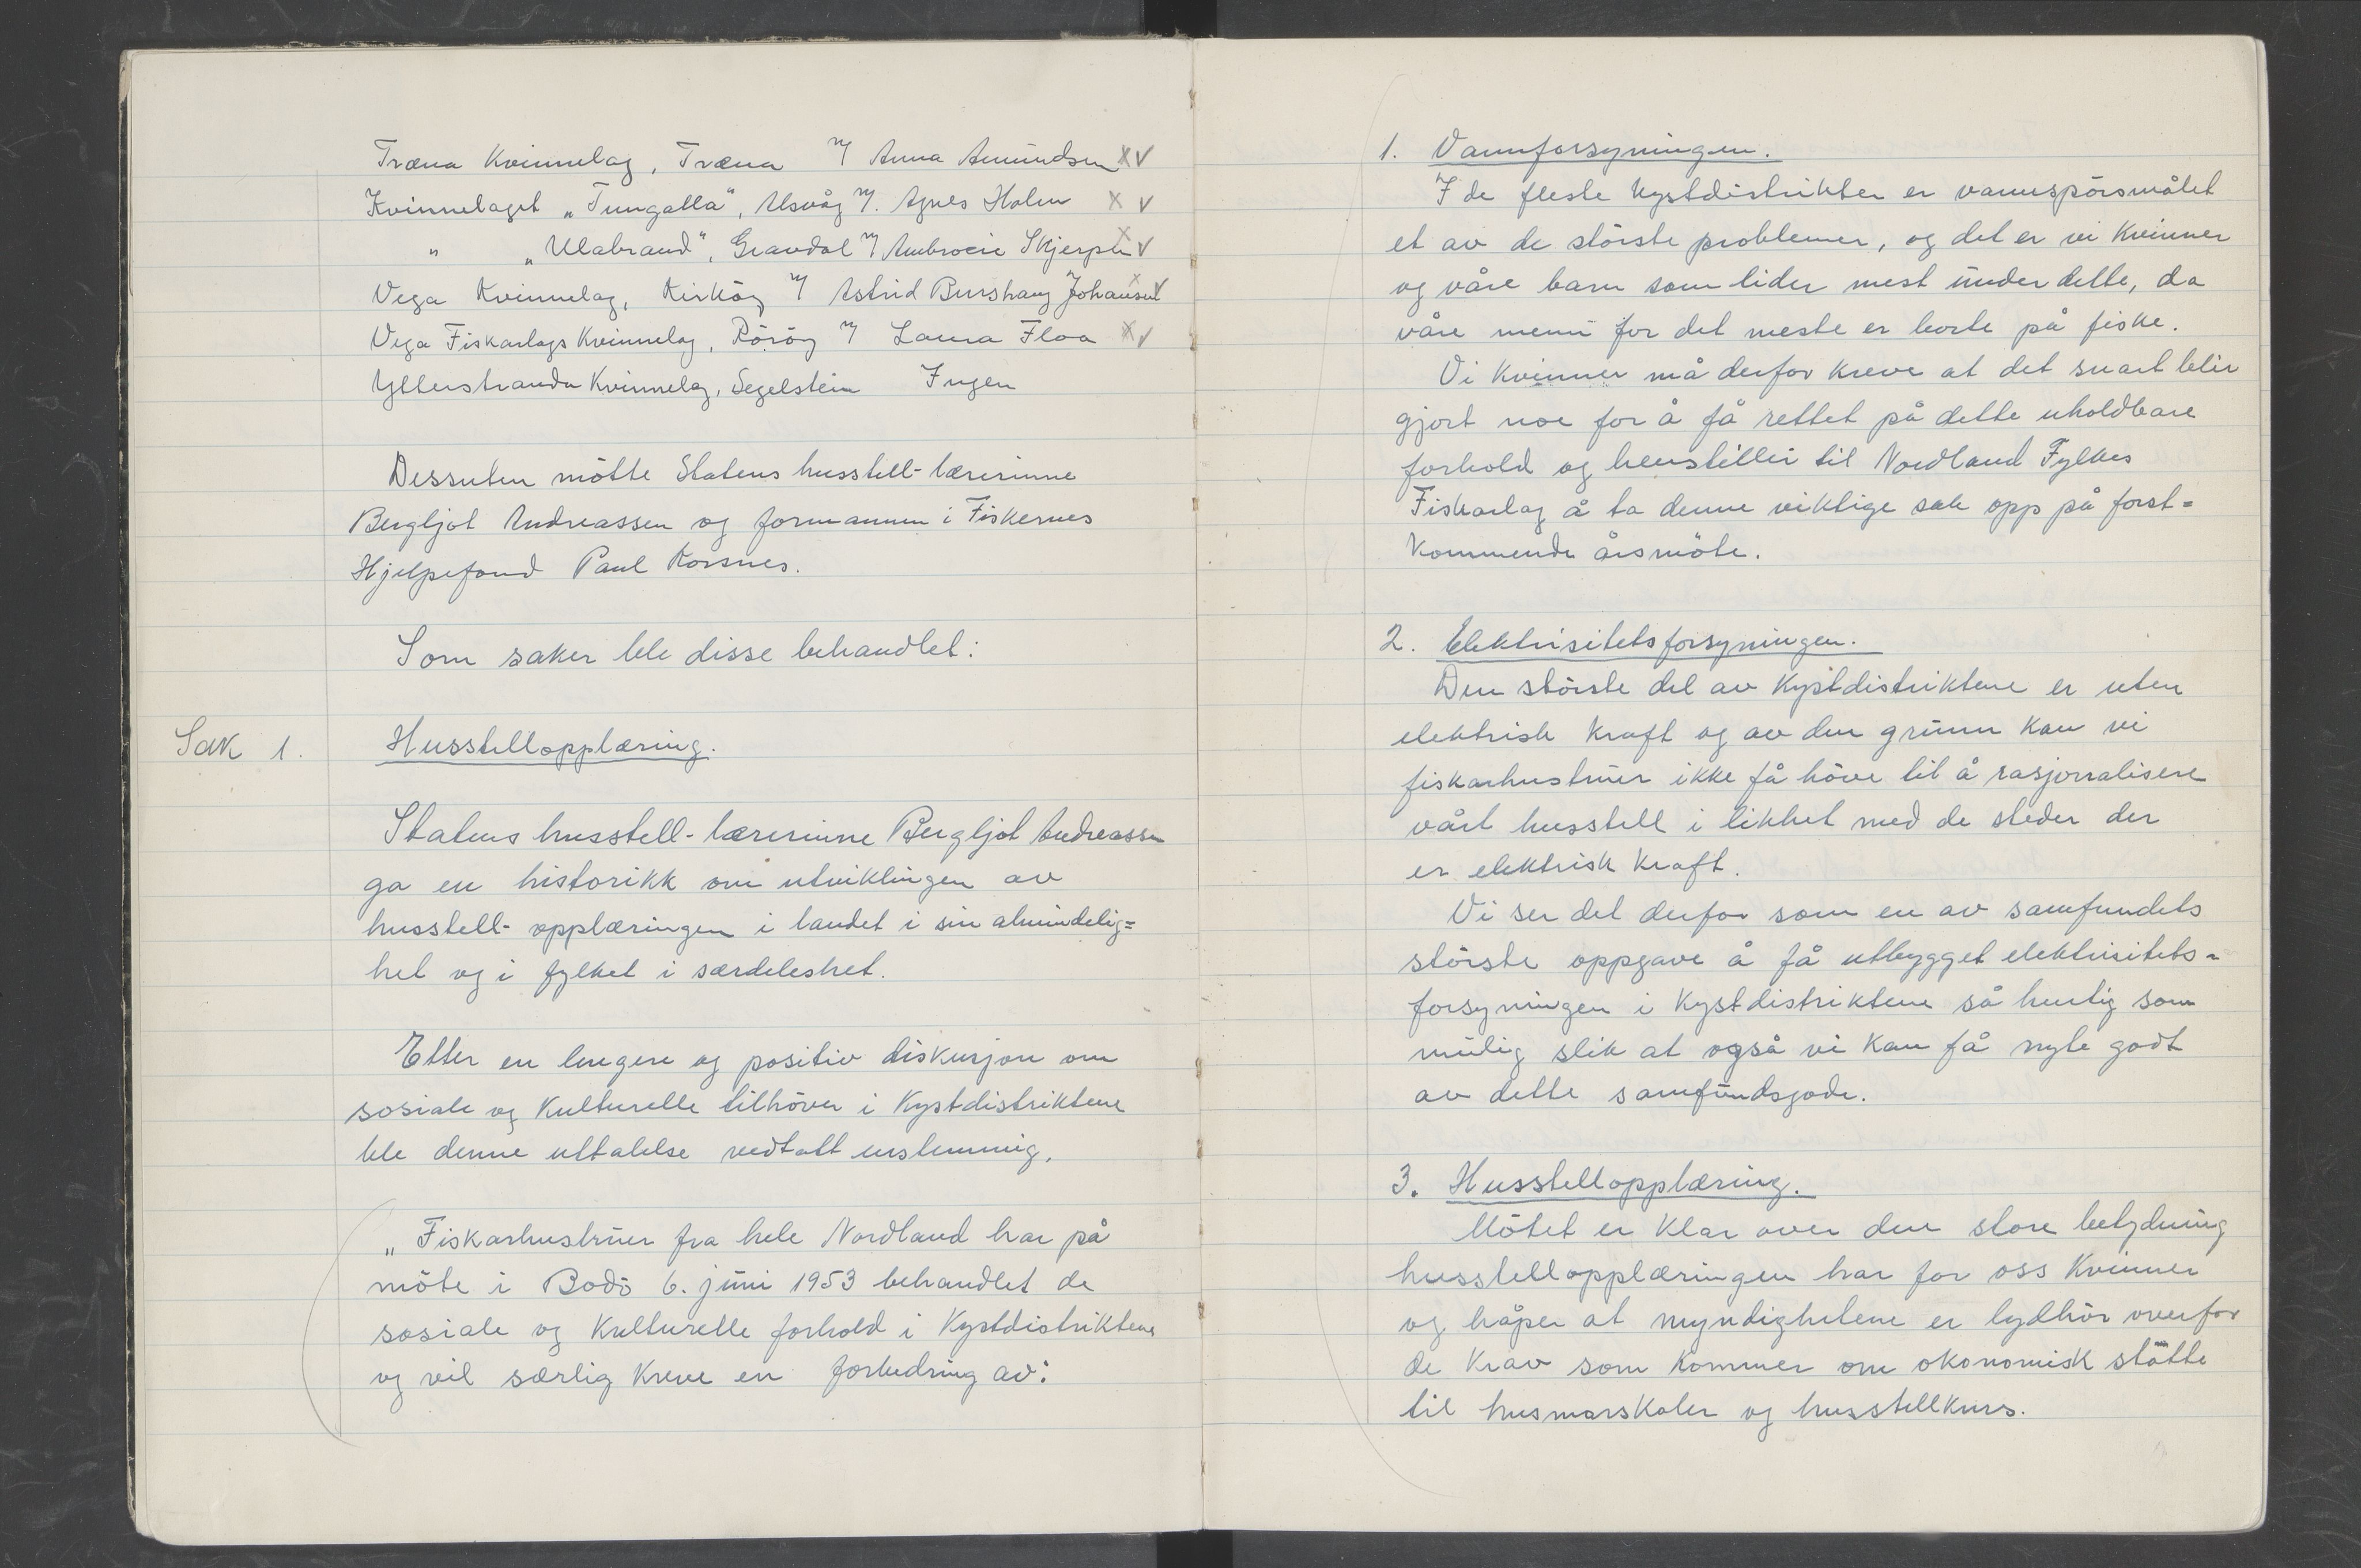 Træna Kvinnelag, Træna v/ Anna Amundsen x v
Kvinnelaget „Tungalla", Usvåg v/. Agnes Holm x v
" „Ulabrand", Gravdal v/ Ambrocie Skjerpen x v
Vega Kvinnelag, Kirköy v/ Astrid Burshaug Johansen x v
Vega Fiskarlags Kvinnelag, Röröy v/ Laura Floa x v
Ytterstranda Kvinnelag, Segelstein Ingen
Dessuten mötte Statens husstell-lærerinne
Bergljot Andreassen og formannen i Fiskernes
Hjelpefond Paul Korsnes.
Som saker ble disse behandlet:
Sak 1. Husstellopplæring.
Statens husstell-lærerinne Bergljot Andreassen
ga en historikk om utviklingen av
husstell-opplæringen i landet i sin almindelig=
het og i fylket i særdeleshet.
Etter en lengere og positiv diskusjon om
sosiale og kulturelle tilhöver i Kystdistriktene
ble denne uttalelse vedtatt enstemmig.
„Fiskarhustruer fra hele Nordland har på
möte i Bodö 6. juni 1953 behandlet de
sosiale og kulturelle forhold i Kystdistriktene
og vil særlig kreve en forbedring av:
1. Vannforsyningen.
I de fleste kystdistrikter er vannspörsmålet
et av de störste problemer, og det er vi kvinner
og våre barn som lider mest under dette, da
våre menn for det meste er borte på fiske.
Vi kvinner må derfor kreve at det snart blir
gjort noe for å få rettet på dette uholdbare
forhold og henstiller til Nordland Fylkes
Fiskarlag å ta denne viktige sak opp på först=
kommende årsmöte.
2. Elektrisitetsforsyningen.
Den störste del av Kystdistriktene er uten
elektrisk kraft og av den grunn kan vi
fiskarhustruer ikke få höve til å rasjonalisere
vårt husstell i likhet med de steder der
er elektrisk kraft.
Vi ser det derfor som en av samfundets
störste oppgave å få utbygget elektrisitets-
forsyningen i Kystdistriktene så hurtig som
mulig slik at også vi kan få nyte godt
av dette samfundsgode.
3. Husstellopplæring.
Mötet er klar over den store betydning
husstellopplæringen har for oss kvinner
og håper at myndighetene er lydhör overfor
de krav som kommer om ökonomisk stötte
til husmorskoler og husstellkurs.